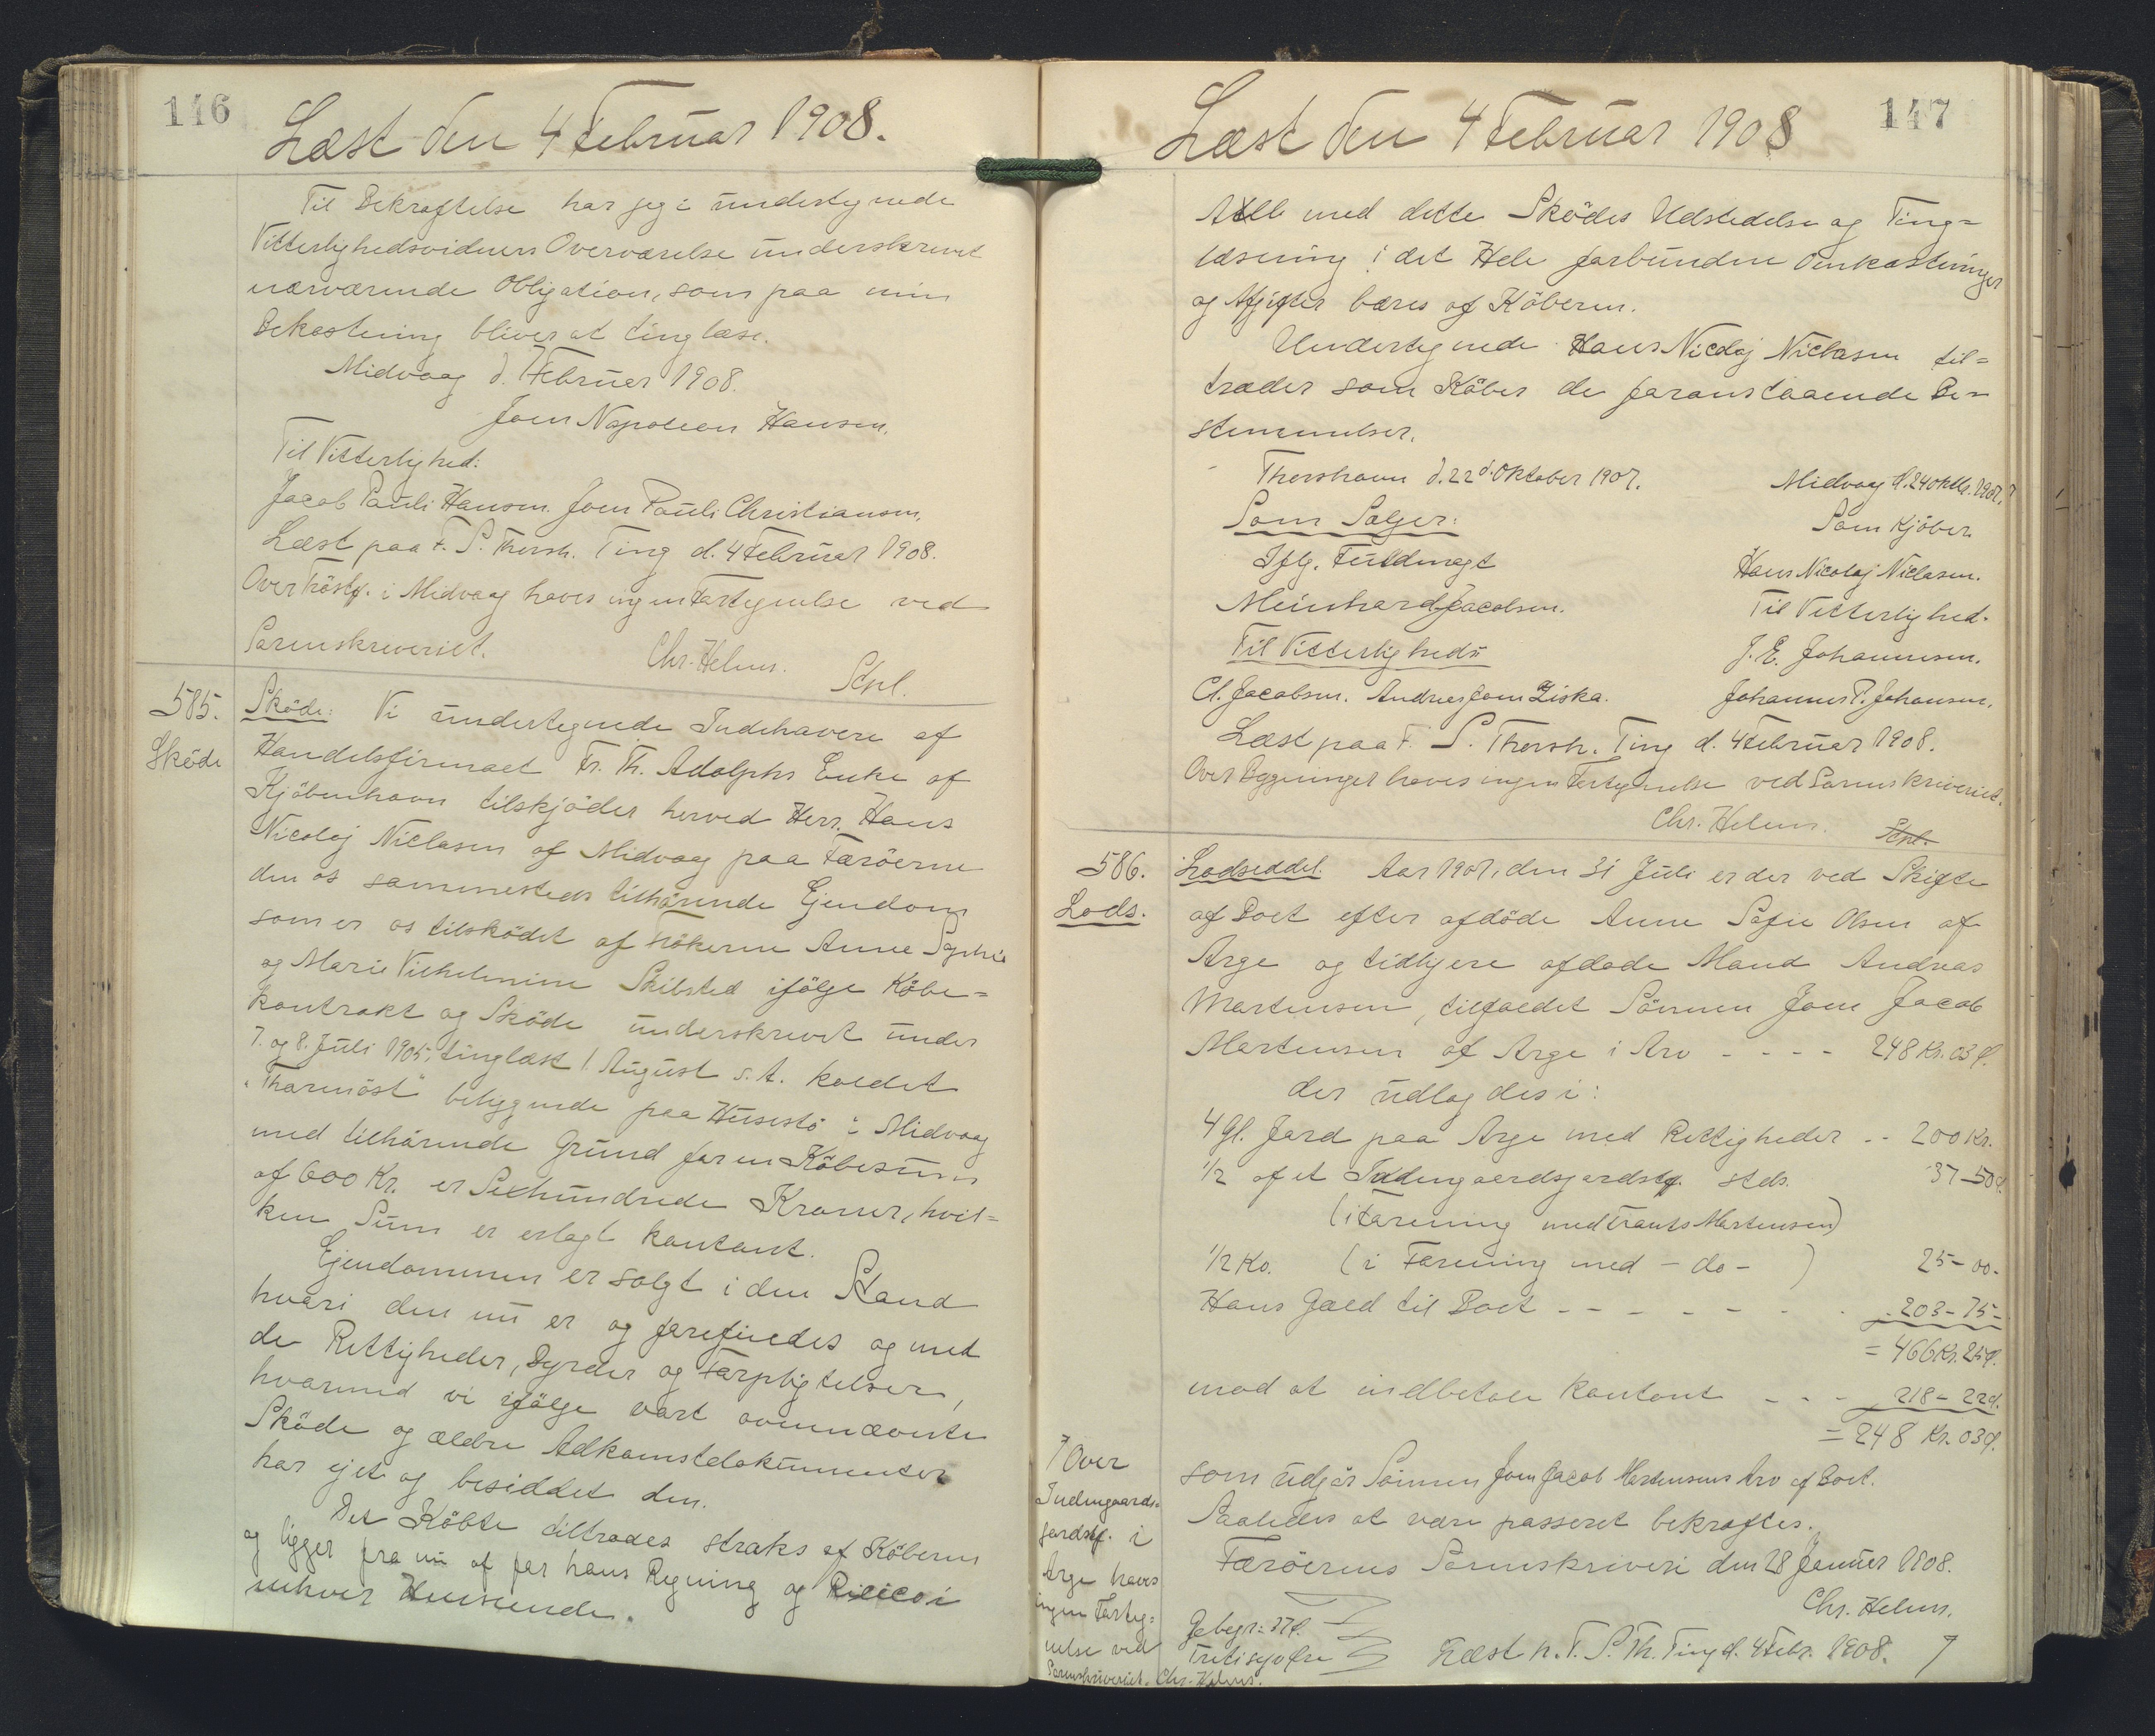 146
Læst den 4 Februar 1908.
Til Bekræftelse har jeg i undertegnede
Vitterlighedsvidners Overværelse underskrevet
nærværende Obligation, som paa min
Bekostning bliver at tinglæse.
Midvaag d. 1 Februar 1908.
Joen Napoleon Hansen.
Til Vitterlighed:
Jacob Pauli Hansen. Joen Pauli Christiansen.
Læst paa F. S. Thorsh. Ting d. 4 Februar 1908.
Over i Midvaag haves ingen Fortegnelse ved
Sorenskriveriet.
Chr. Helms.
585.
Sköde
Sköde: Vi undertegnede Indehavere af
Handelsfirmaet Fr. Th. Adolphs Enke af
Kjöbenhavn tilskjöder herved Herr. Hans
Nicolaj Niclasen af Midvaag paa Færöerne
den os sammesteds tilhörende Ejendom
som er os tilsködet af Frökerne Anne Sophie
og Marie Vilhelmine Skibsted ifölge Köbe-
kontrakt og Sköde underskrevet under
7. og 8. Juli 1905, tinglæst 1. August s. A. kaldet
"Tharmöst" bebyggede paa Husestö i Midvaag
med tilhörende Grund for en Köbesum
af 600 Kr. er Sexhundrede Kroner, hvil-
ken Sum er erlagt kontant.
Ejendommen er solgt i den Stand
hvori den nu er og forefindes og med
de Rettigheder, Byrder og Forpligtelser,
hvormed vi ifölge vort ovennævnte
Sköde og ældre Adkomstdokumenter
har ejet og besiddet den.
Det Köbte tiltrædes straks af Köberen
og ligger fra nu af for hans Regning og Risico i
enhver Henseende.
147
Læst den 4 Februar 1908
Alle med dette Sködes Udstedelse og Ting-
læsning i det Hele forbundne Omkostninger
og Afgifter bæres af Köberen.
Undertegnede Hans Nicolaj Niclasen til-
træder som Köber de foranstaaende Be-
stemmelser.
Thorshavn d. 22d. Oktober 1907.
Midvaag d. 24 Oktbr. 1907.
Som Sælger:
Som Kjöber
Iflg. Fuldmagt
Hans Nicolaj Niclasen.
Meinhard Jacobsen.
Til Vitterlighed.
Til Vitterlighed:
J. E. Johannesen.
Cl. Jacobsen. Andreas Joen Ziska.
Johannes P. Johansen.
Læst paa F. S. Thorsh. Ting d. 4 Februar 1908.
Over Bygninger haves ingen Fortegnelse ved Sorenskriveriet.
Chr. Helms.
586.
Lods.
Lodseddel. Aar 1907, den 31 Juli er der ved Skifte
af Boet efter afdöde Anne Sofie Olsen af
Arge og tidligere afdöde Mand Andreas
Martensen, tilfaldet Sönnen Joen Jacob
Martensen af Arge i Arv - - - - 248 Kr. 03 Ø.
der udlagdes i:
4 Gl. Jord paa Arge med Rettigheder - - 200 Kr.
1/2 af et Indengaardsjordstk. stds. 37-50 Ø.
(i Forening med Frants Martensen)
1/2 Ko. (i Forening med - do - ) 25-00-
Hans Gæld til Boet - - - - - - 203-75-
= 466 Kr. 25 Ø.
mod at indbetale kontant - - - 218-22 Ø.
= 248 Kr. 03 Ø.
som udgör Sönnen Joen Jacob Martensens Arv af Boet.
Saaledes at være passeret bekræftes.
Færöernes Sorenskriveri den 28 Januar 1908.
Chr. Helms.
Gebyr: 37 Ø.
Læst p. F. S. Th. Ting d. 4 Febr. 1908.
Over
Indengaards-
jordstk. i
Arge haves
ingen Forteg-
nelse ved
Sorenskriveriet. Chr. Helms.